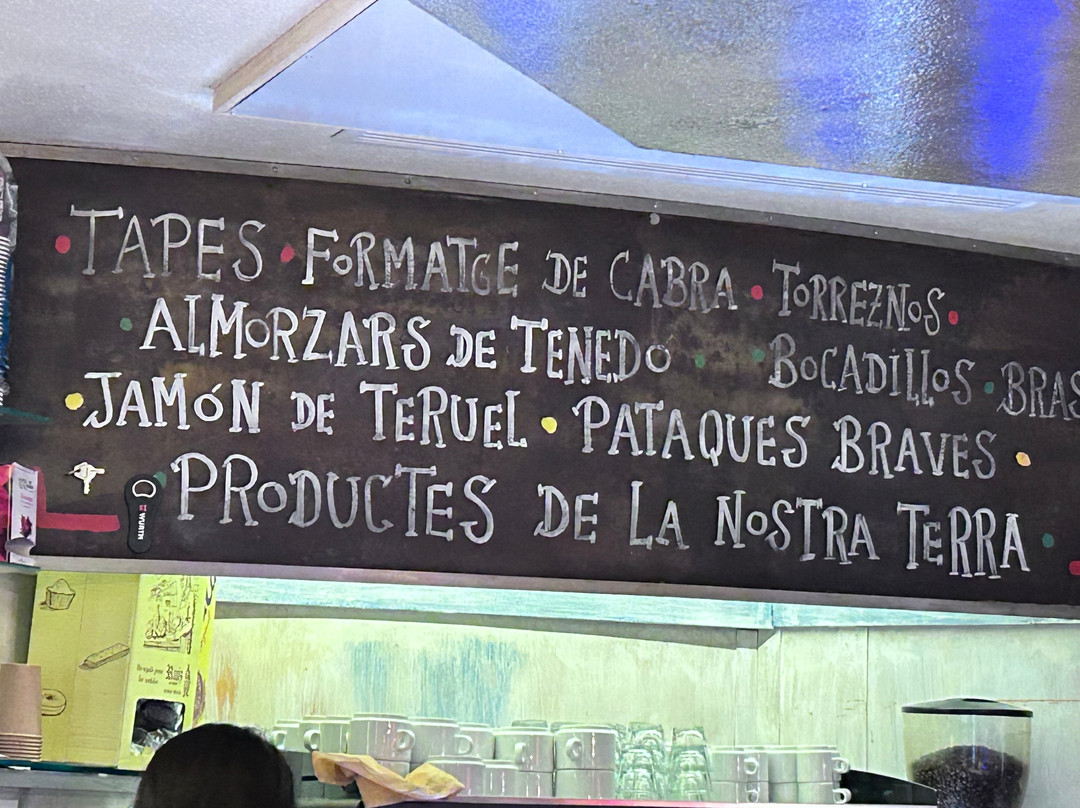 TAPES • FORMATGE DE CABRA • TORREZNOS •
ALMORZARS DE TENEDO • • BOCADILLOS • BRAS
• JAMÓN DE TERUEL • PATAQUES BRAVES •
PRODUCTES DE LA NOSTRA TERRA •
WÜRTH